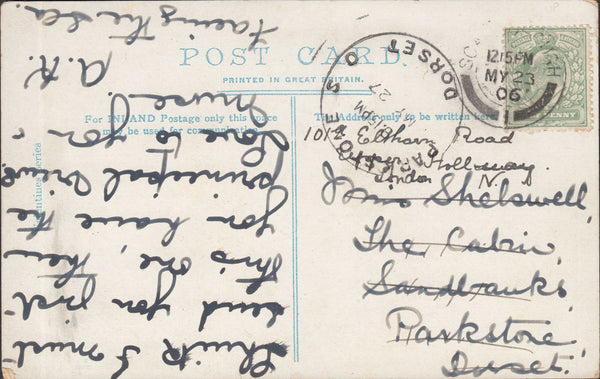 POST CARD.
PRINTED IN GREAT BRITAIN.
For INLAND Postage only this space
may be used for communication.
The Address only to be written here
Think I must
send you first
this one, then
you have the
principal views.
Love to you &
muse.
A. K.
facing the sea.
12.15PM
MY 23
06
PENNY
PARKSTONE S.O.
DORSET
27
Road
Holloway
London N.
Shelswell,
The Cabin,
Sandbanks,
Parkstone,
Dorset.